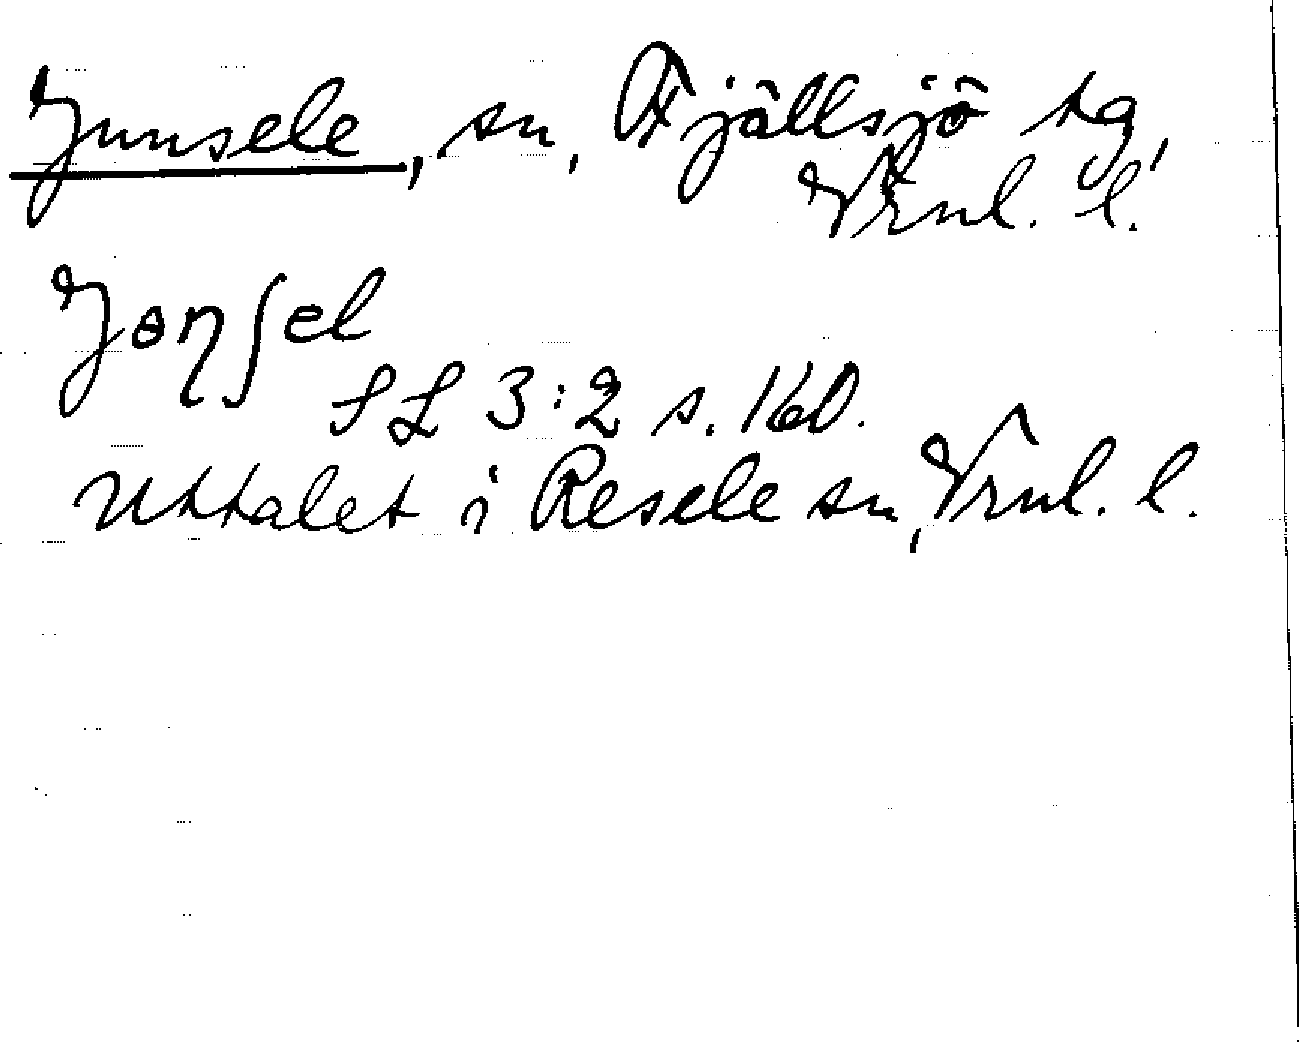 Junsele, sn, Fjällsjö tg,
Vrnl. l.
Jɵnʃel
SL 3:2 s. 160.
Uttalet i Resele sn, Vrnl. l.